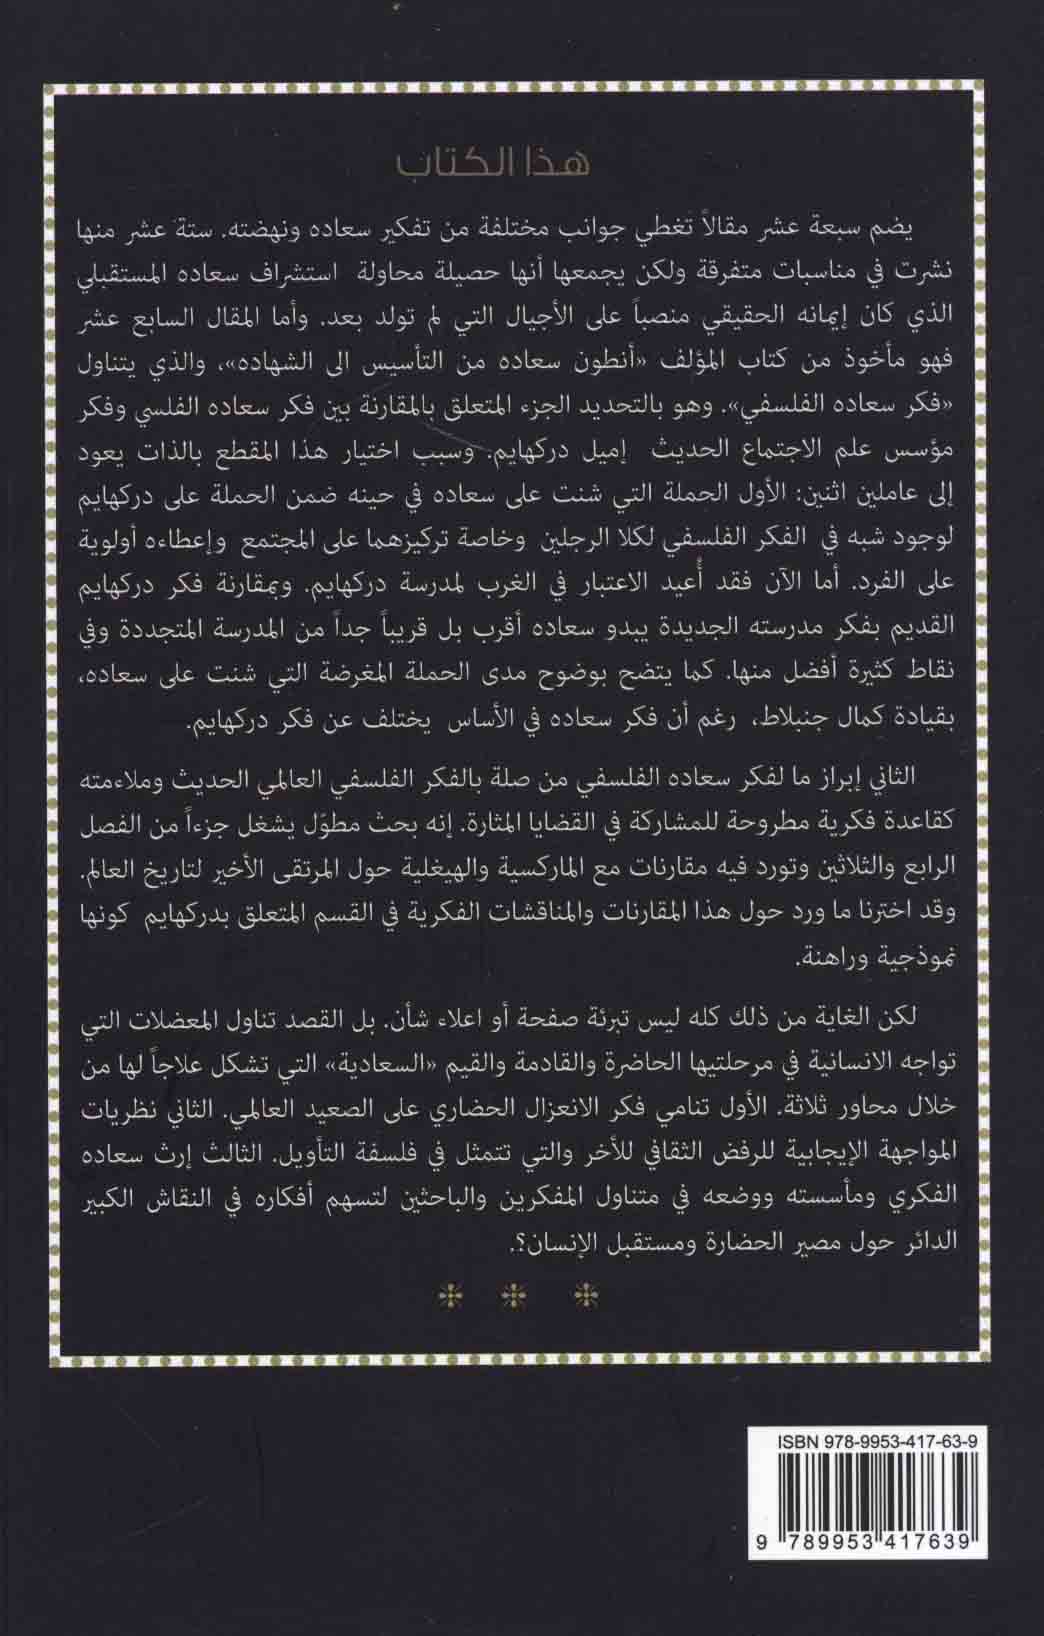 هذا الكتاب
يضم سبعة عشر مقالاً تغطي جوانب مختلفة من تفكير سعاده ونهضته. ستة عشر منها
نشرت في مناسبات متفرقة ولكن يجمعها أنها حصيلة محاولة استشراف سعاده المستقبلي
الذي كان إيمانه الحقيقي منصباً على الأجيال التي لم تولد بعد. وأما المقال السابع عشر
فهو مأخوذ من كتاب المؤلف «أنطون سعاده من التأسيس الى الشهاده»، والذي يتناول
«فكر سعاده الفلسفي». وهو بالتحديد الجزء المتعلق بالمقارنة بين فكر سعاده الفلسي وفكر
مؤسس علم الاجتماع الحديث إميل دركهايم. وسبب اختيار هذا المقطع بالذات يعود
إلى عاملين اثنين: الأول الحملة التي شنت على سعاده في حينه ضمن الحملة على دركهايم
لوجود شبه في الفكر الفلسفي لكلا الرجلين وخاصة تركيزهما على المجتمع وإعطاءه أولوية
على الفرد. أما الآن فقد أُعيد الاعتبار في الغرب لمدرسة دركهايم. وبمقارنة فكر دركهايم
القديم بفكر مدرسته الجديدة يبدو سعاده أقرب بل قريباً جداً من المدرسة المتجددة وفي
نقاط كثيرة أفضل منها. كما يتضح بوضوح مدى الحملة المغرضة التي شنت على سعاده،
بقيادة كمال جنبلاط، رغم أن فكر سعاده في الأساس يختلف عن فكر دركهايم.
الثاني إبراز ما لفكر سعاده الفلسفي من صلة بالفكر الفلسفي العالمي الحديث وملاءمته
كقاعدة فكرية مطروحة للمشاركة في القضايا المثارة. إنه بحث مطوّل يشغل جزءاً من الفصل
الرابع والثلاثين وتورد فيه مقارنات مع الماركسية والهيغلية حول المرتقى الأخير لتاريخ العالم.
وقد اخترنا ما ورد حول هذا المقارنات والمناقشات الفكرية في القسم المتعلق بدركهايم كونها
نموذجية وراهنة.
لكن الغاية من ذلك كله ليس تبرئة صفحة أو اعلاء شأن. بل القصد تناول المعضلات التي
تواجه الانسانية في مرحلتيها الحاضرة والقادمة والقيم «السعادية» التي تشكل علاجاً لها من
خلال محاور ثلاثة. الأول تنامي فكر الانعزال الحضاري على الصعيد العالمي. الثاني نظريات
المواجهة الإيجابية للرفض الثقافي للأخر والتي تتمثل في فلسفة التأويل. الثالث إرث سعاده
الفكري ومأسسته ووضعه في متناول المفكرين والباحثين لتسهم أفكاره في النقاش الكبير
الدائر حول مصير الحضارة ومستقبل الإنسان؟.
ISBN 978-9953-417-63-9
9 789953 417639